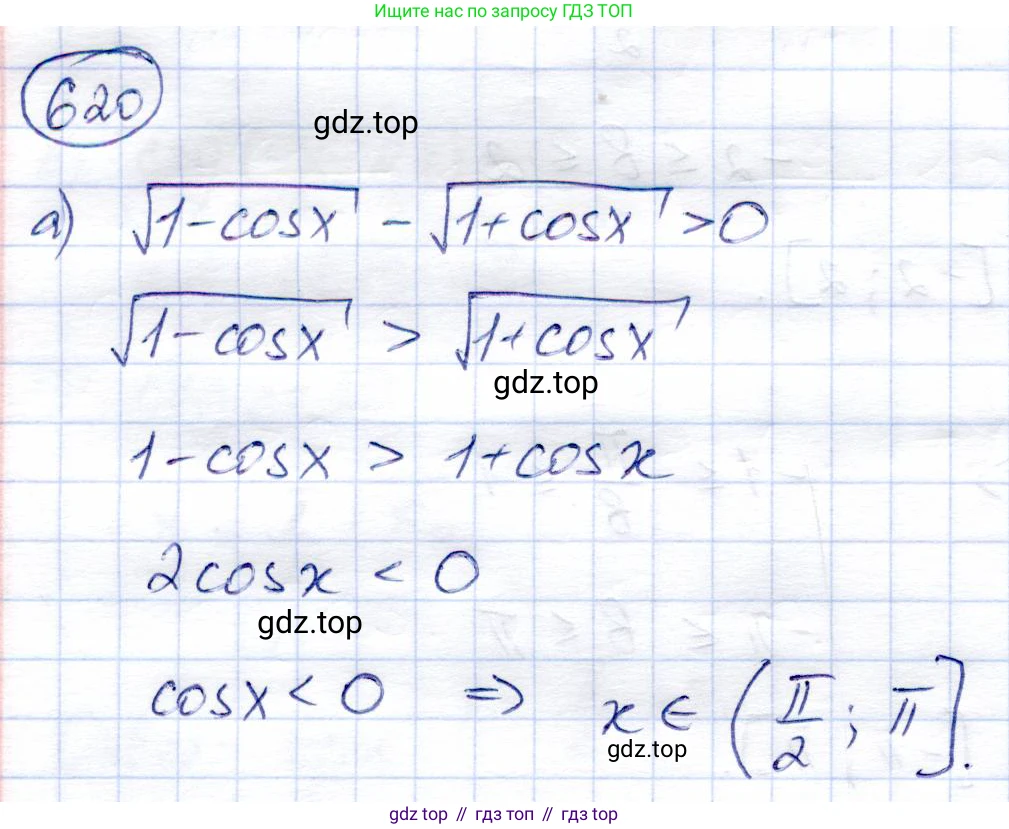 Ищите нас по запросу ГДЗ ТОП
620
gdz.top
а) √(1-cosx) - √(1+cosx) > 0
√(1-cosx) > √(1+cosx)
gdz.top
1-cosx > 1+cosx
2cosx < 0
gdz.top
cosx < 0 ⇒ x ∈ (π/2; π].
gdz.top
gdz top // гдз топ // gdz top